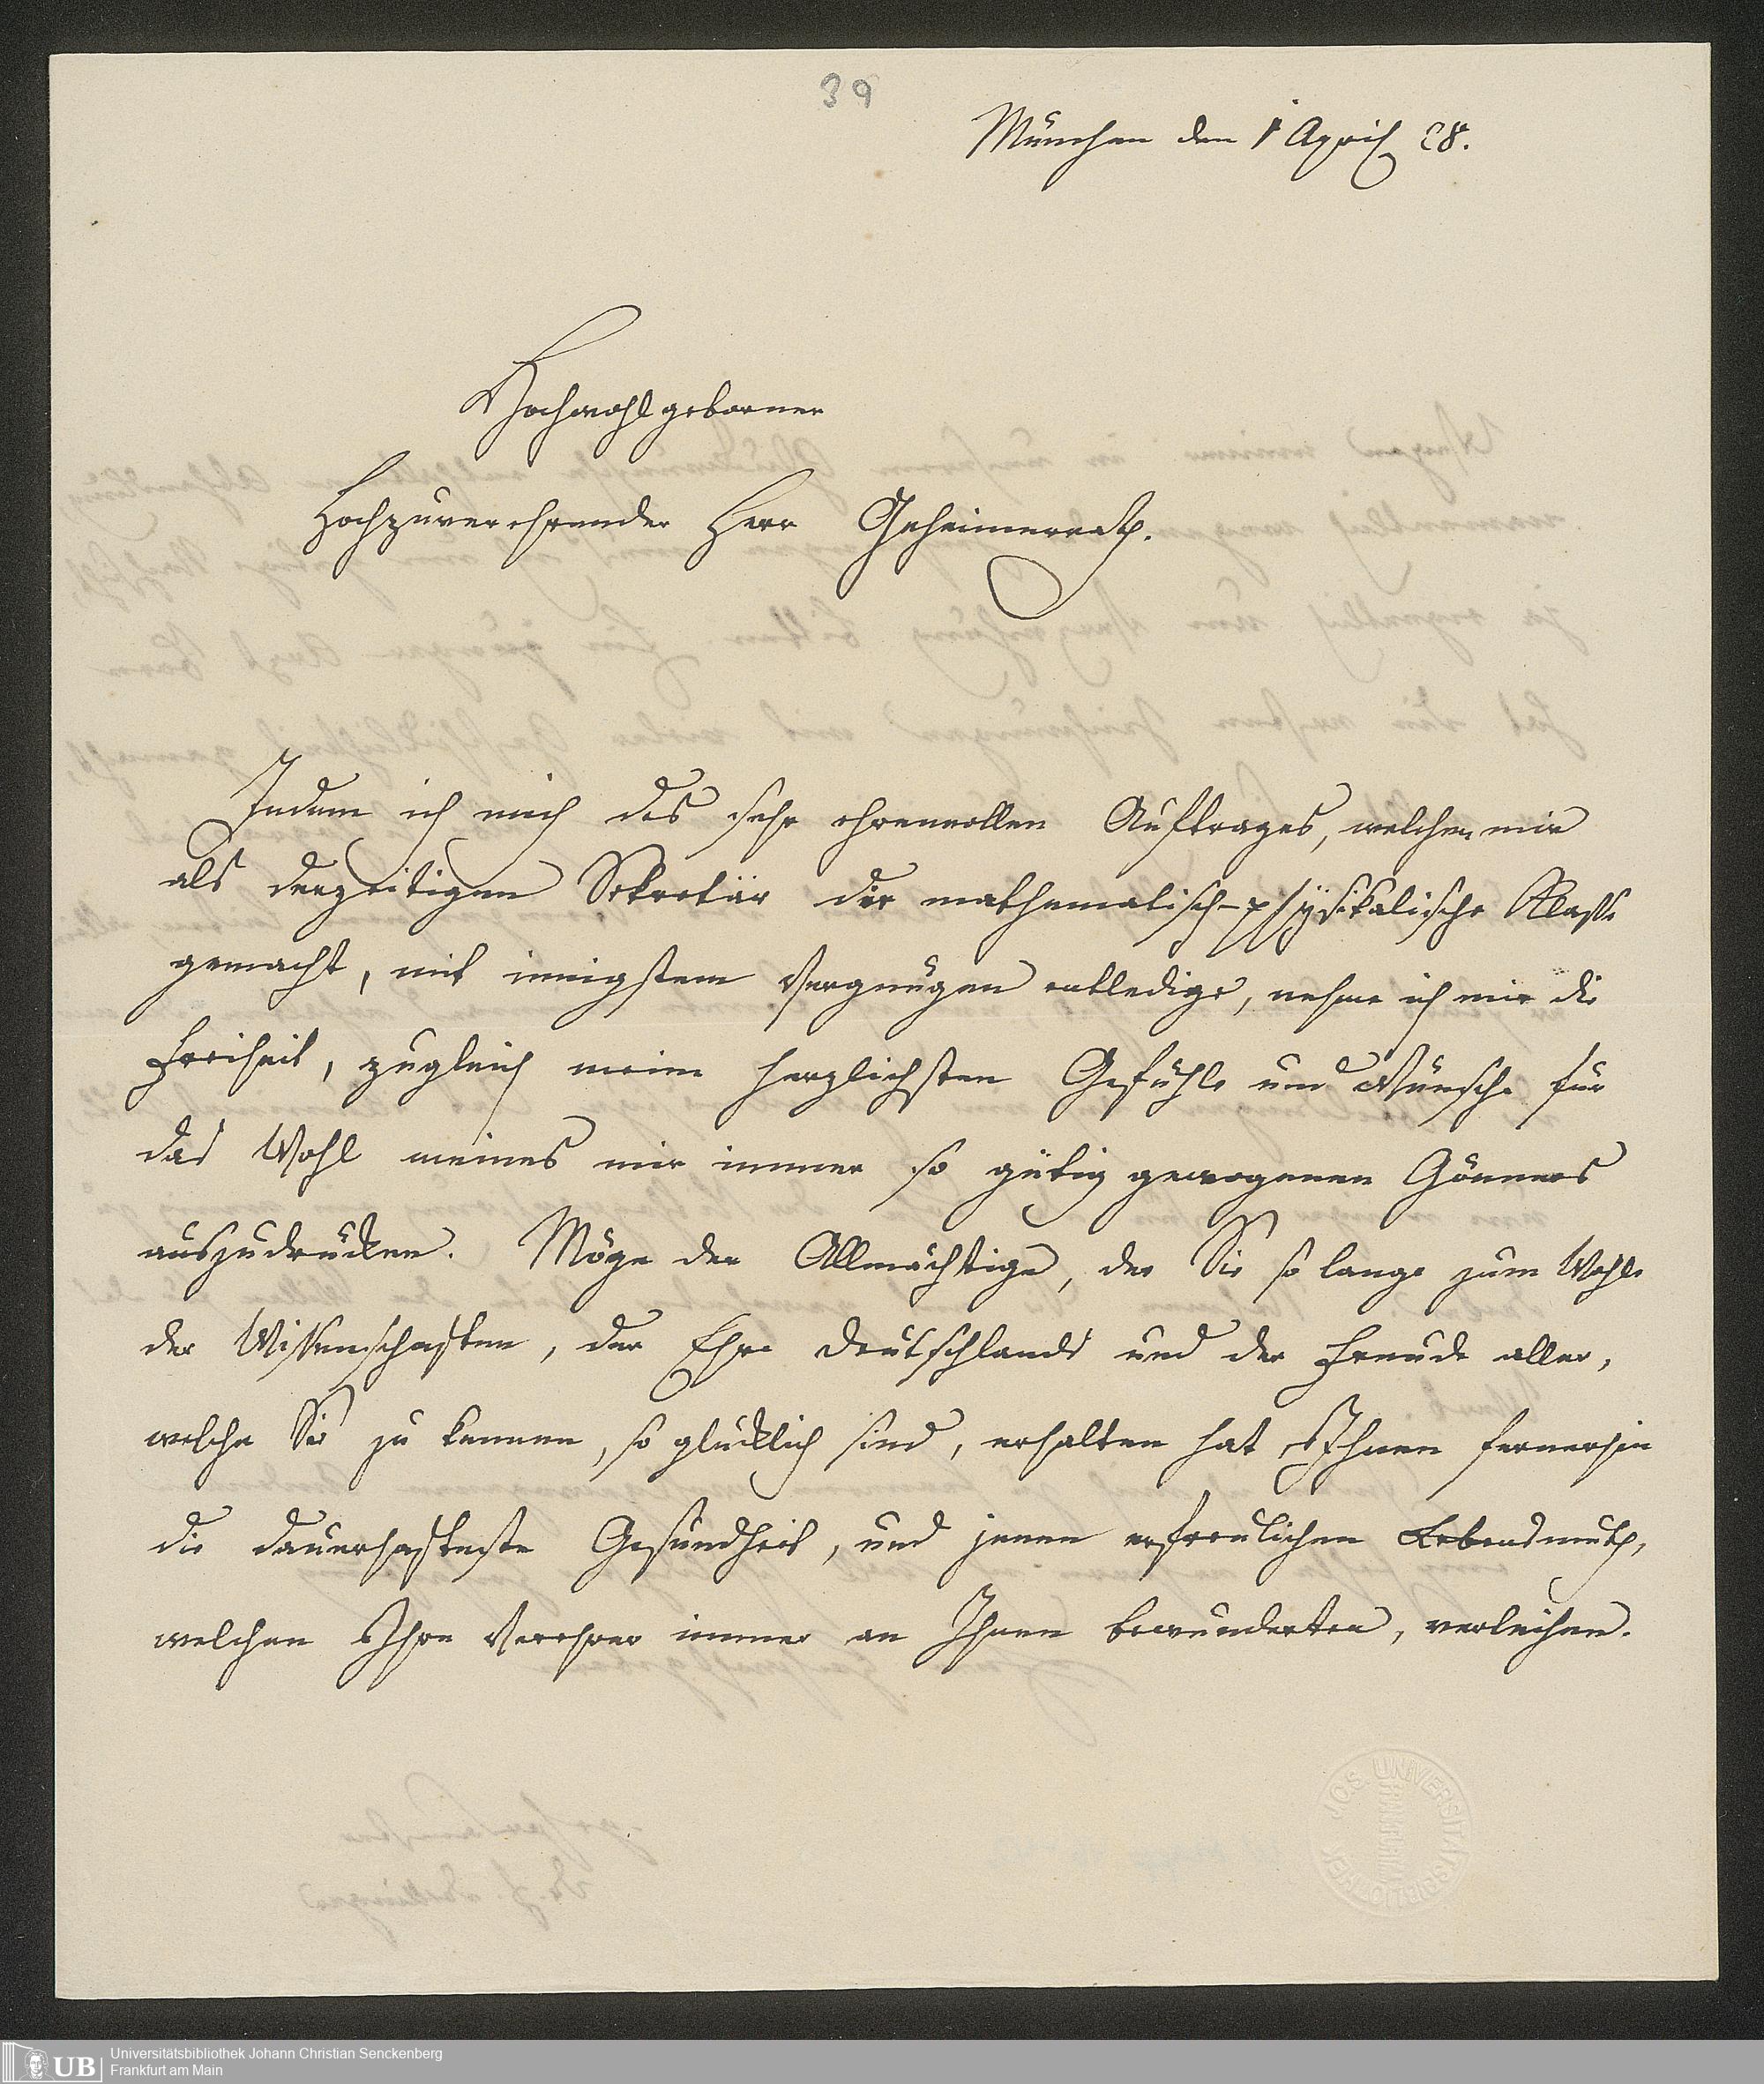 39
München den 1 April 28.
Hochwohlgeborner
Hochzuverehrender Herr Geheimerrath.
Indem ich mich des sehr ehrenvollen Auftrages, welchen mir
als derzeitigen Sekretär der mathematisch-physikalische Klasse
gemacht, mit innigstem Vergnügen entledige, nehme ich mir die
Freiheit, zugleich meine herzlichsten Gefühle und Wünsche für
das Wohl meines mir immer so gütig gewogenen Gönners
auszudrücken. Möge der Allmächtige, der Sie so lange zum Wohle
der Wissenschaften, der Ehre Deutschlands und der Freude aller,
welche Sie zu kennen, so glücklich sind, erhalten hat Ihnen fernerhin
die dauerhafteste Gesundheit, und jenen erfreulichen Lebensmuth,
welchen Ihre Verehrer immer an Ihnen bewunderten, verleihen.
UB
Universitätsbibliothek Johann Christian Senckenberg
Frankfurt am Main